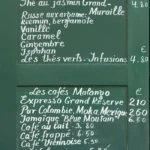 Thé au jasmin Grand- 4.80
Muraille
Russe aux agrumes.
Ricmin, bergamote
Vanille
Caramel
Gingembre
Les thés verts - Infusions 4.80
€
Les cafés Malongo €
Expresso Grand Réserve 2.10
Pur Colombie, Moka, Mexique 2.60
Jamaïque "Blue Montain" 6
Café au lait - 3.80
Café frappé - 6.50
Café Viennoise 6.50